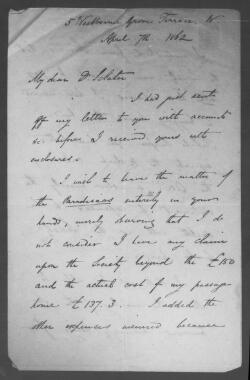 5 Westbourne Grove Terrace, W
April 7th 1862
My dear Dr Sclater
I had just sent
off my letter to you with accounts
&c. before I received yours with
enclosures.
I wish to leave the matter of
the Paradiseas entirely in your
hands, merely observing that I do
not consider I have any claim
upon the Society beyond the £150
and the actual cost of my passage
home £137.3. I added the
other expenses incurred because